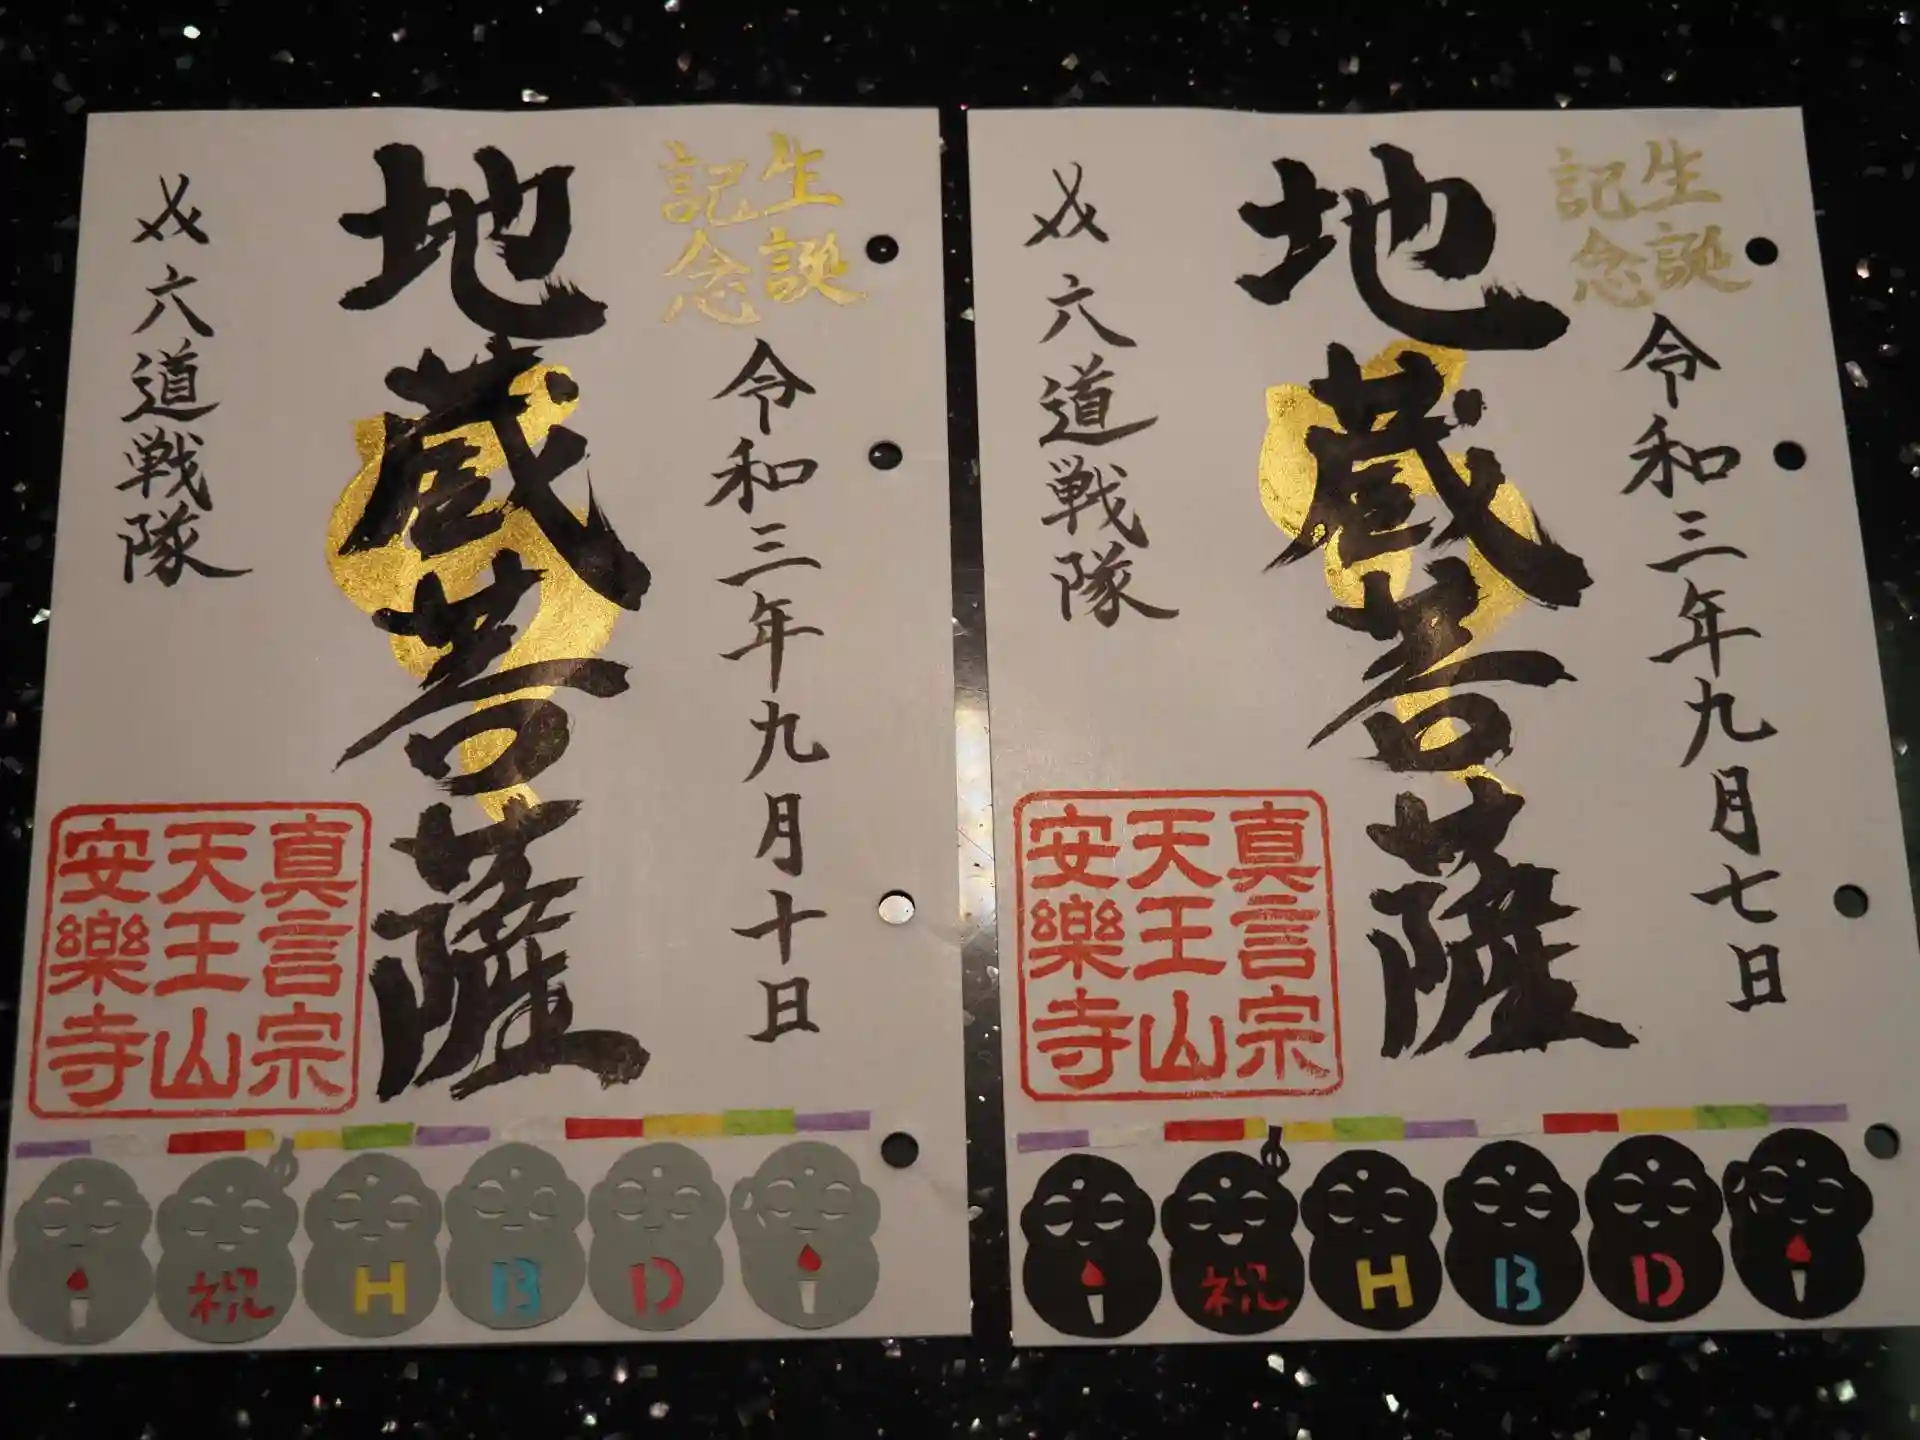 生誕
記念
令和三年九月十日
地蔵菩薩
六道戦隊
真言宗
天王山
安樂寺
祝 H B D
生誕
記念
令和三年九月七日
地蔵菩薩
六道戦隊
真言宗
天王山
安樂寺
祝 H B D